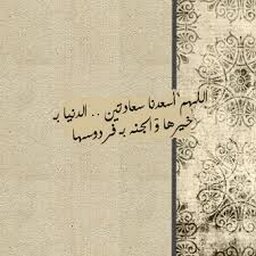 اللهم أسعدنا سعادتين .. الدنيا بـ
خيرها و الجنه بـ فردوسها